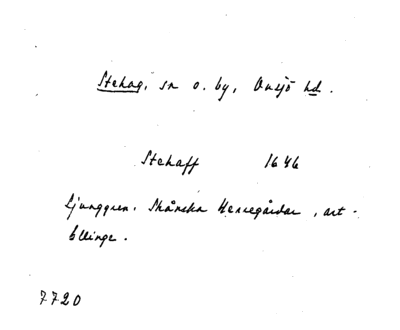 Stehag, sn o. by, Onsjö hd.
Stehaff 1646
Ljunggren. Skånska Herregårdar, art.
Ellinge.
7720